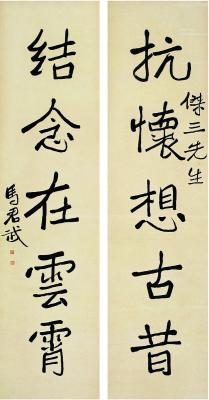 抗懷想古昔
傑三先生
结念在雲霄
馬君武